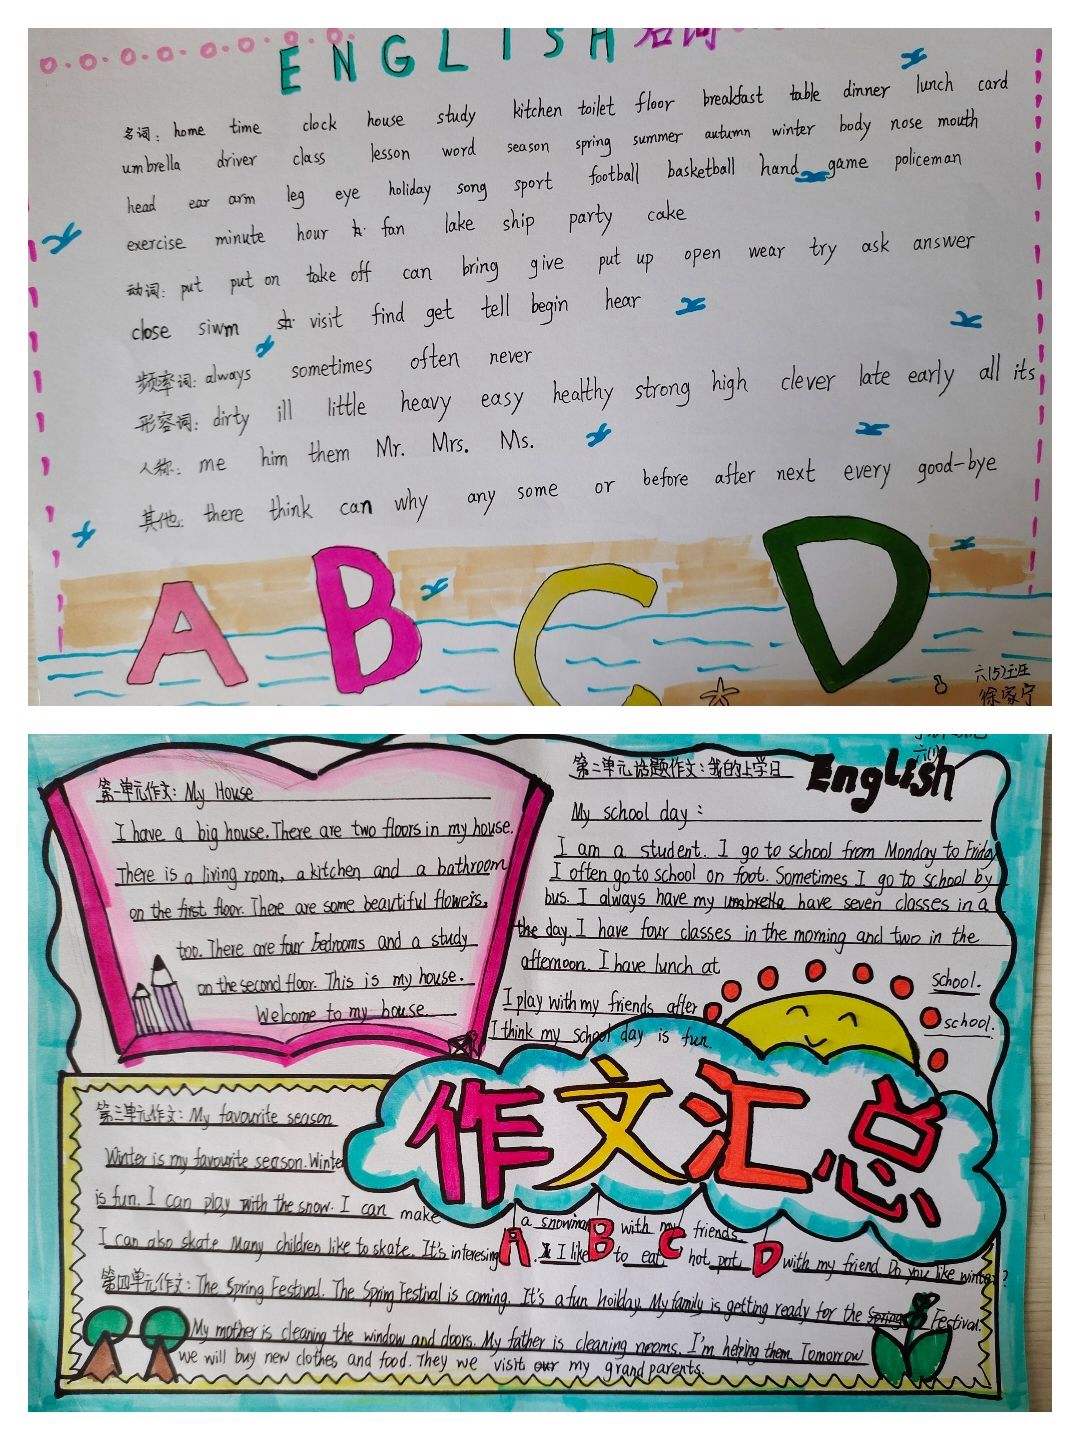 ENGLISH 名词
名词: home time clock house study kitchen toilet floor breakfast table dinner lunch card
umbrella driver class lesson word season spring summer autumn winter body nose mouth
head ear arm leg eye holiday song sport football basketball hand game policeman
exercise minute hour fan lake ship party cake
动词: put put on take off can bring give put up open wear try ask answer
close siwm visit find get tell begin hear
频率词: always sometimes often never
形容词: dirty ill little heavy easy healthy strong high clever late early all its
人称: me him them Mr. Mrs. Ms.
其他: there think can why any some or before after next every good-bye
A B C D
六(5)班
徐家宁
第一单元作文: My House
I have a big house. There are two floors in my house.
There is a living room, a kitchen and a bathroom
on the first floor. There are some beautiful flowers,
too. There are four bedrooms and a study
on the second floor. This is my house.
Welcome to my house.
第二单元话题作文: 我的上学日
English
My school day:
I am a student. I go to school from Monday to Friday
I often go to school on foot. Sometimes I go to school by
bus. I always have my umbrella have seven classes in a
the day. I have four classes in the morning and two in the
afternoon. I have lunch at school.
I play with my friends after school.
I think my school day is fun.
作文汇总
第三单元作文: My favourite season
Winter is my favourite season. Winter
is fun. I can play with the snow. I can make a snowman with my friends
I can also skate. Many children like to skate. It's interesing. I like to eat hot pot with my friend. Do you like winter?
A B C D
第四单元作文: The Spring Festival. The Spring Festival is coming. It's a fun hoilday. My family is getting ready for the Spring Festival.
My mother is cleaning the window and doors. My father is cleaning rooms. I'm helping them. Tomorrow
we will buy new clothes and food. They we visit our my grandparents.